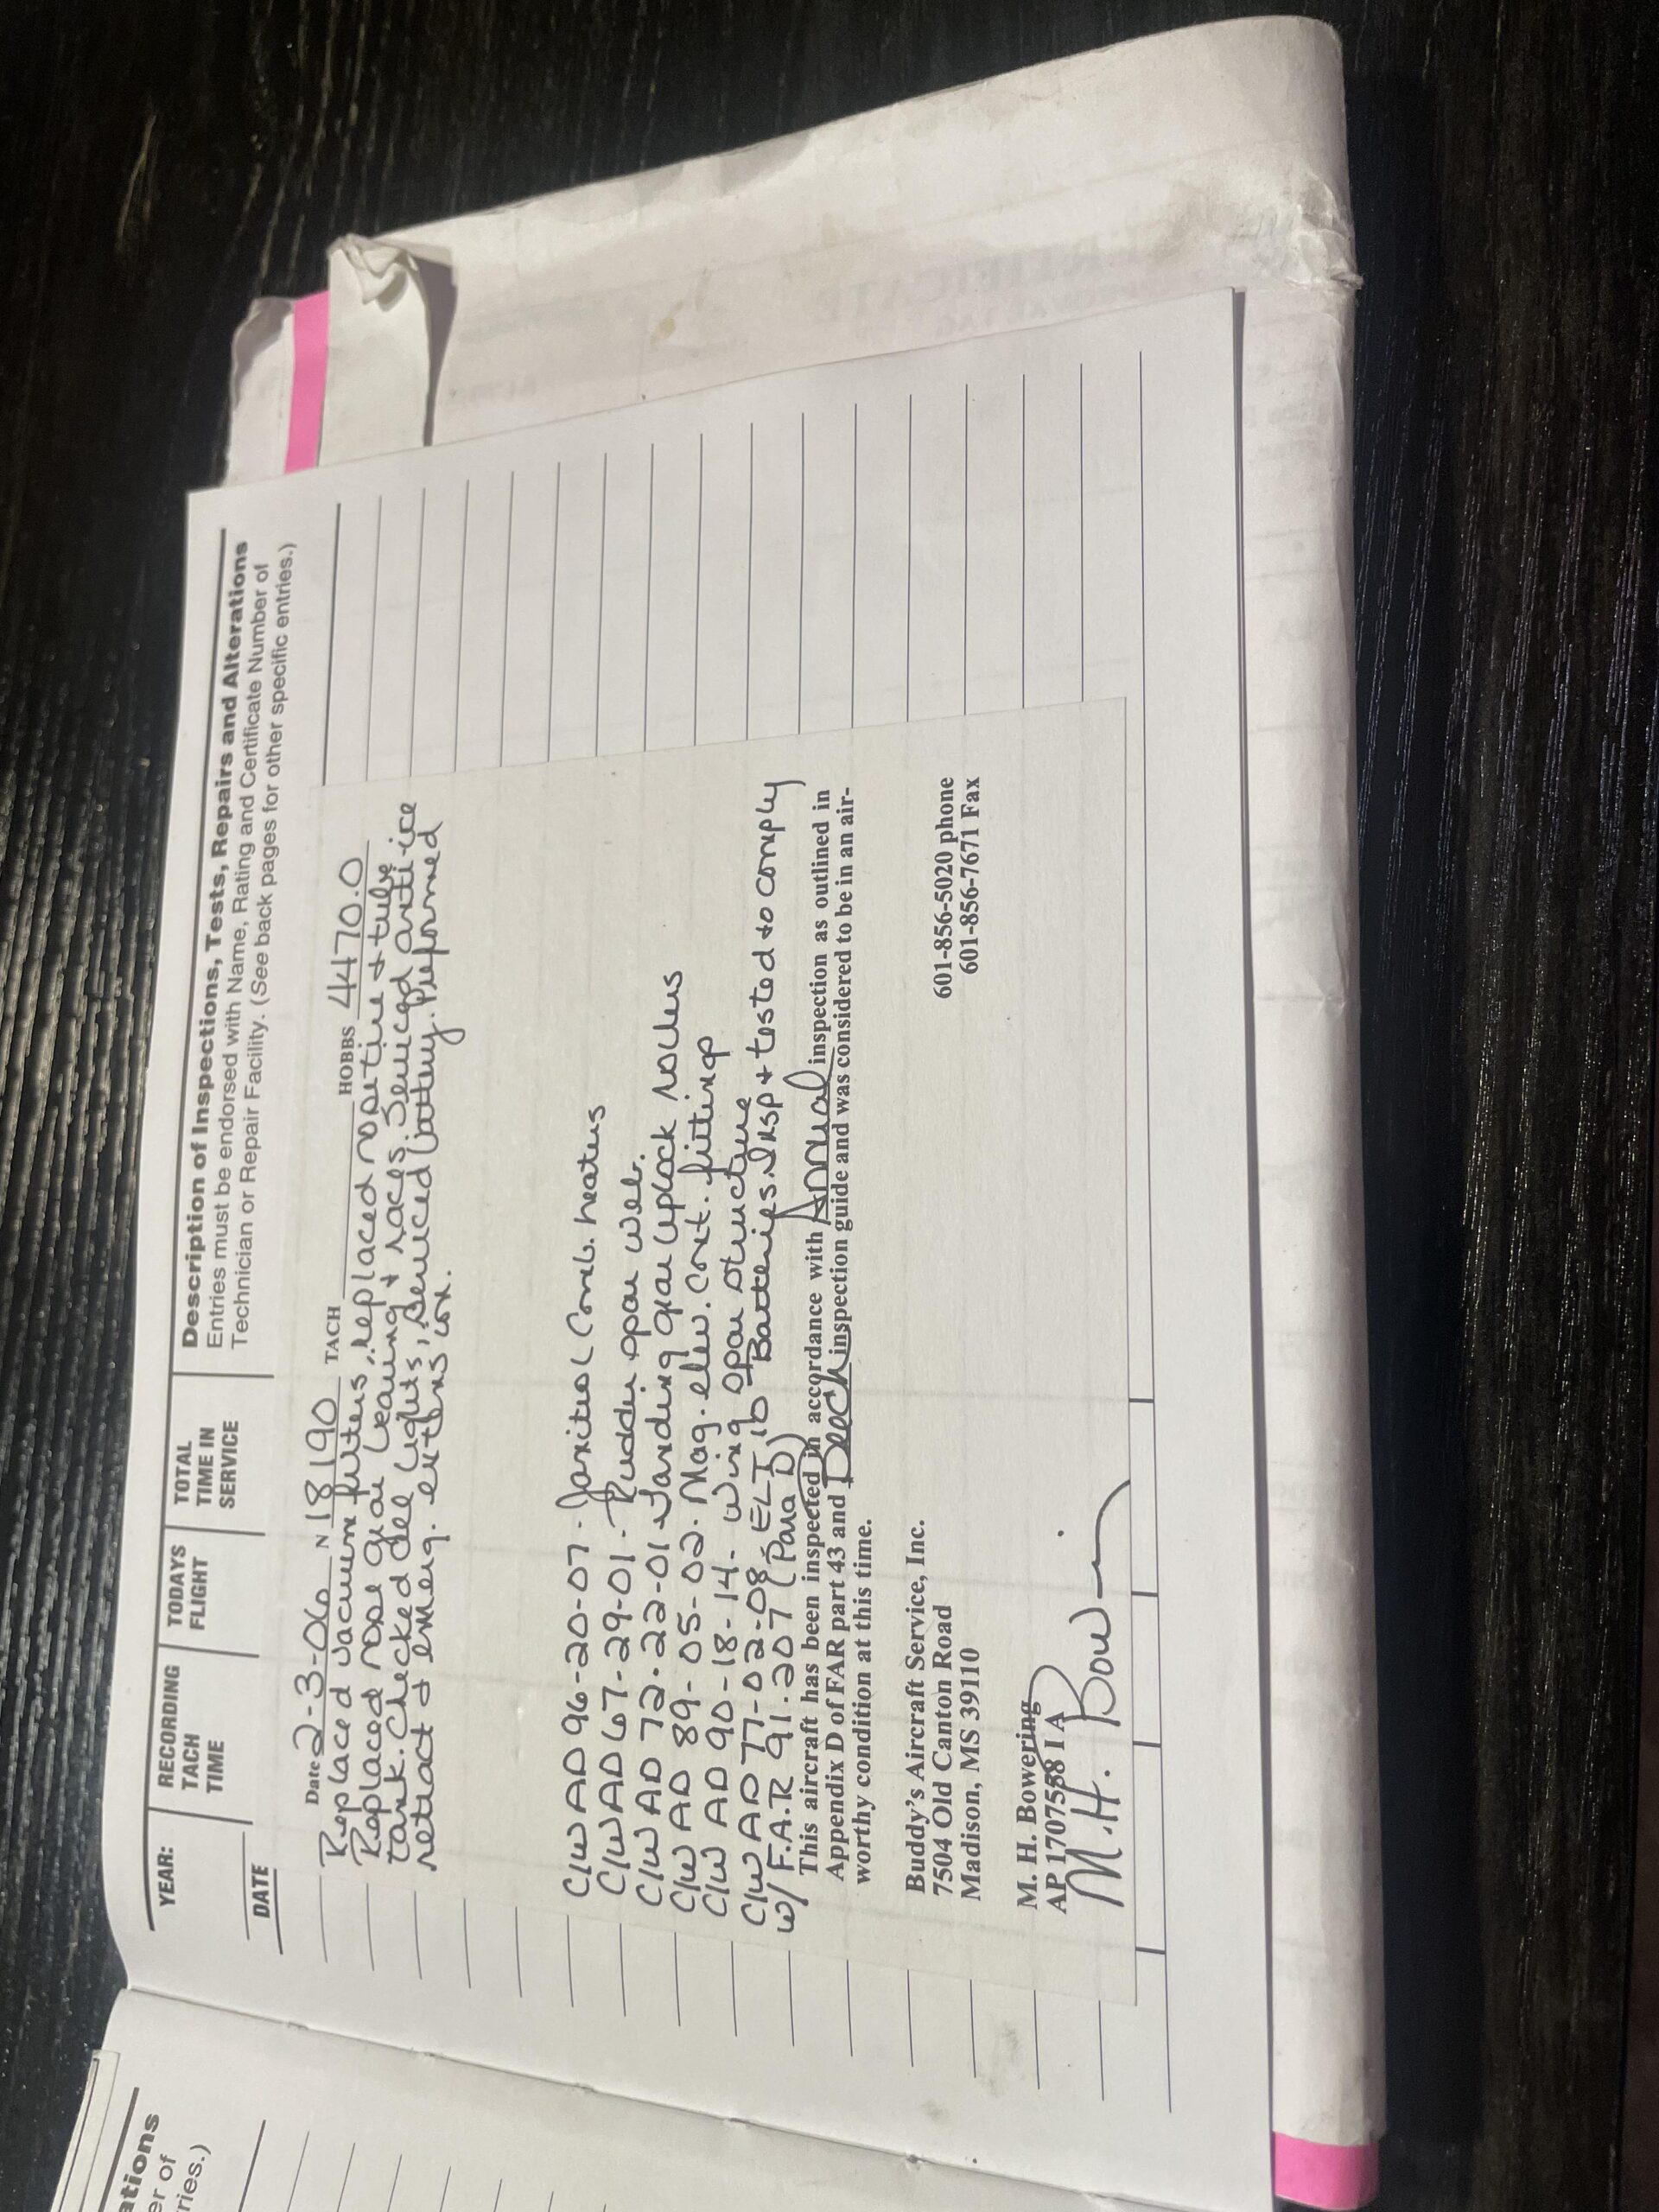 YEAR:
RECORDING TACH TIME
TODAYS FLIGHT
TOTAL TIME IN SERVICE
Description of Inspections, Tests, Repairs and Alterations
Entries must be endorsed with Name, Rating and Certificate Number of
Technician or Repair Facility. (See back pages for other specific entries.)
DATE
Date 2-3-06 N 18190 TACH HOBBS 4470.0
Replaced vacuum filters, replaced nose tire + tube
Replaced nose gear bearing + races. Serviced anti-ice
tank. Checked all lights, Serviced battery. Preformed
retract + emerg. extension.
C/W AD 96-20-07 - Janitrol Comb. heaters
C/W AD 67-29-01 - Rudder spar web.
C/W AD 72-22-01 - Landing gear uplock rollers
C/W AD 89-05-02 - Mag. elev. cont. fittings
C/W AD 90-18-14 - Wing spar structure
C/W AD 77-02-08 - ELT Batteries. Insp + tested to comply
w/ F.A.R 91.207 (Para D)
This aircraft has been inspected in accordance with Annual inspection as outlined in
Appendix D of FAR part 43 and Beech inspection guide and was considered to be in an air-
worthy condition at this time.
Buddy's Aircraft Service, Inc.
7504 Old Canton Road 601-856-5020 phone
Madison, MS 39110 601-856-7671 Fax
M. H. Bowering
AP 1707558 I A
M.H. Bow
ations
er of
ries.)